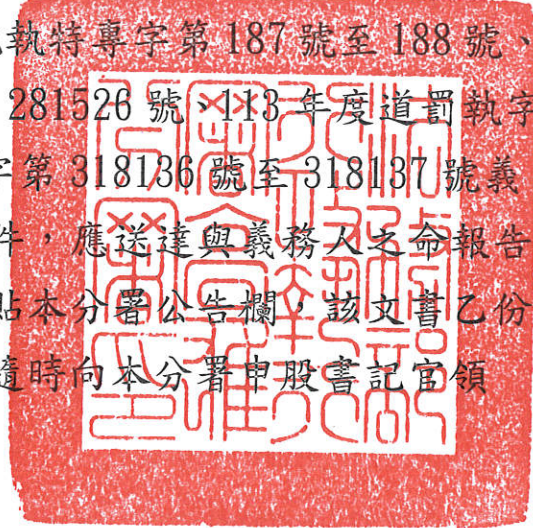 執特專字第 187 號至 188 號、
281526 號、113 年度道罰執字
字第 318136 號至 318137 號義
件，應送達與義務人之命報告
貼本分署公告欄，該文書乙份
隨時向本分署申股書記官領